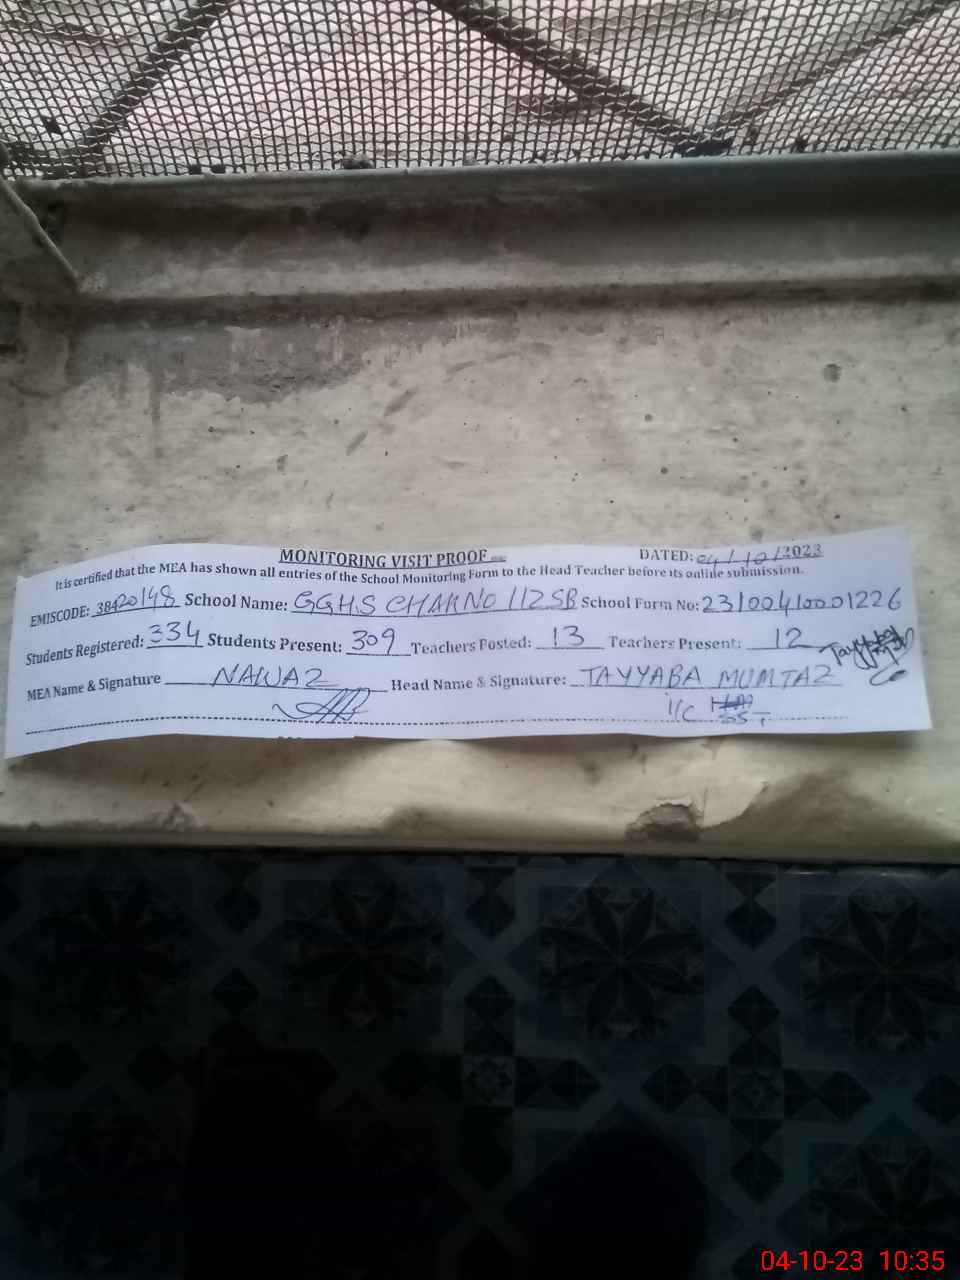 MONITORING VISIT PROOF DATED: 04/10/2023
It is certified that the MEA has shown all entries of the School Monitoring Form to the Head Teacher before its online submission.
EMISCODE: 38420148 School Name: GGHS CHAK NO 112SB School Form No: 23100410001226
Students Registered: 334 Students Present: 309 Teachers Posted: 13 Teachers Present: 12
MEA Name & Signature NAWAZ Head Name & Signature: TAYYABA MUMTAZ
I/C SST
04-10-23 10:35